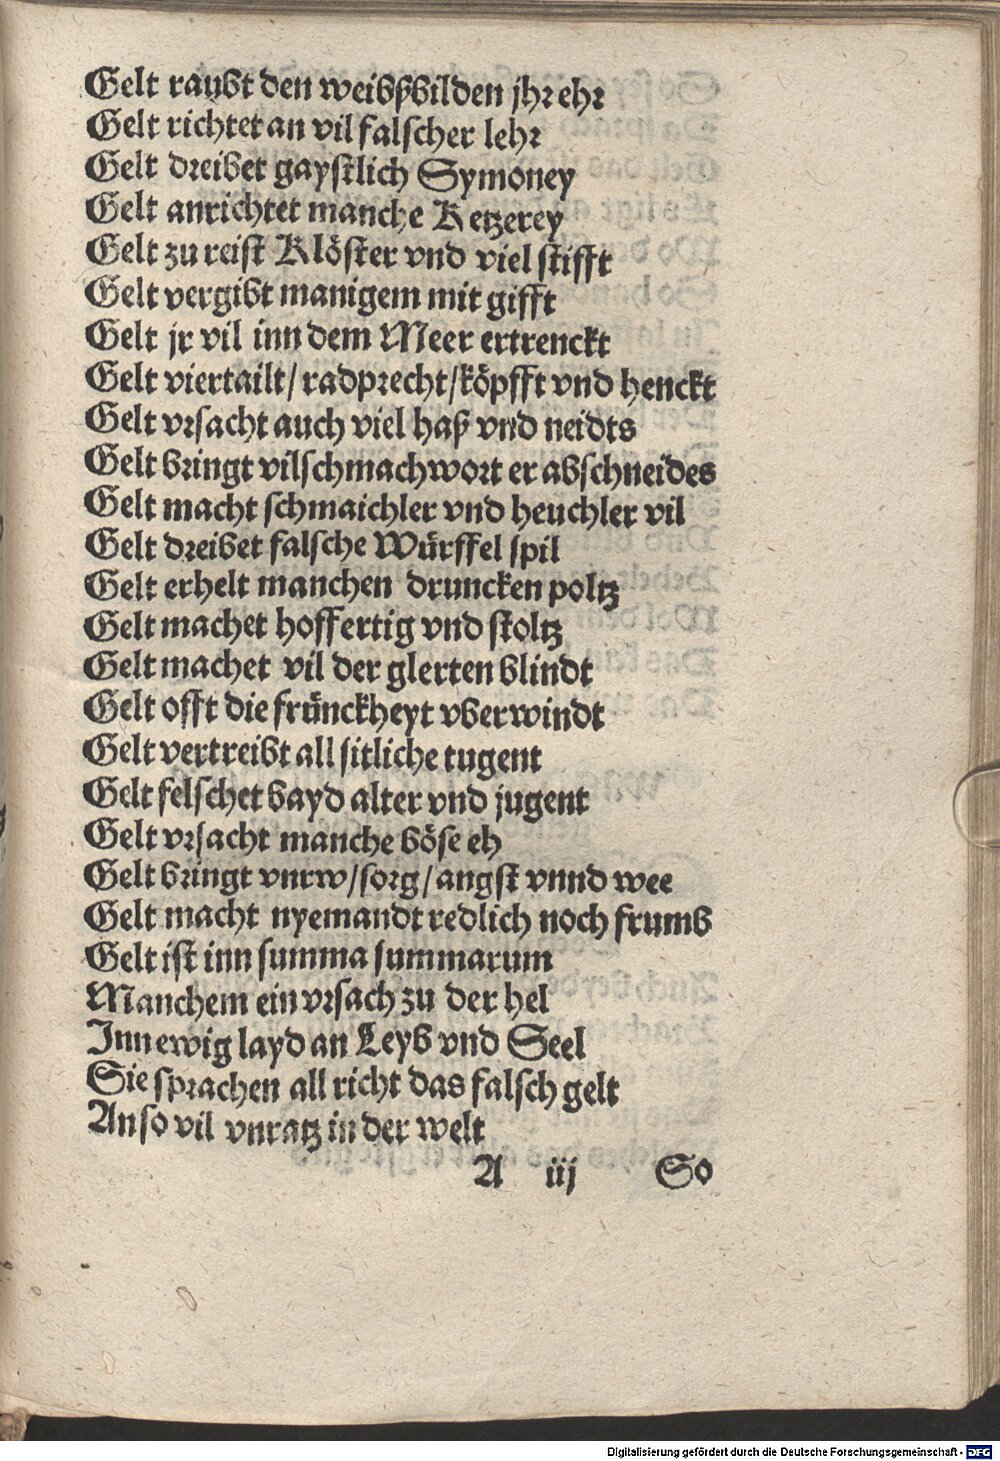 Gelt raubt den weibßbilden jhr ehr
Gelt richtet an vil falscher lehr
Gelt dreibet gaystlich Symoney
Gelt anrichtet manche Ketzerey
Gelt zu reist Klöster vnd viel stifft
Gelt vergibt manigem mit gifft
Gelt jr vil inn dem Meer ertrenckt
Gelt viertailt/ radprecht/köpfft vnd henckt
Gelt vrsacht auch viel haß vnd neidts
Gelt bringt vil schmachwort er abschneides
Gelt macht schmaichler vnd heuchler vil
Gelt dreibet falsche Würffel spil
Gelt erhelt manchen druncken poltz
Gelt machet hoffertig vnd stoltz
Gelt machet vil der glerten blindt
Gelt offt die frünckheyt vberwindt
Gelt vertreibt all sitliche tugent
Gelt felschet bayd alter vnd jugent
Gelt vrsacht manche böse eh
Gelt bringt vnrw/sorg/angst vnnd wee
Gelt macht nyemandt redlich noch frumb
Gelt ist inn summa summarum
Manchem ein vrsach zu der hel
Inn ewig layd an Leyb vnd Seel
Sie sprachen all richt das falsch gelt
An so vil vnratz in der welt
A iij So
Digitalisierung gefördert durch die Deutsche Forschungsgemeinschaft - DFG